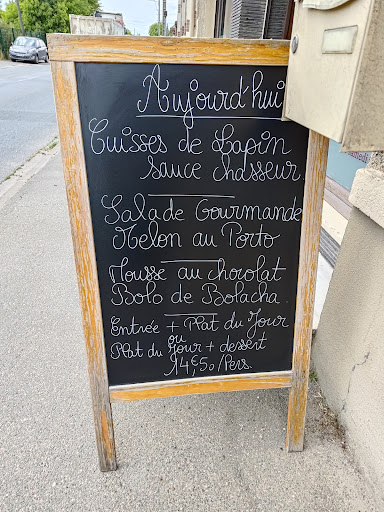 Aujourd'hui
Cuisses de Lapin
sauce chasseur.
Salade Gourmande
Melon au Porto
Mousse au chocolat
Bolo de Bolacha.
Entrée + Plat du Jour
ou
Plat du Jour + dessert
14€,50/Pers.